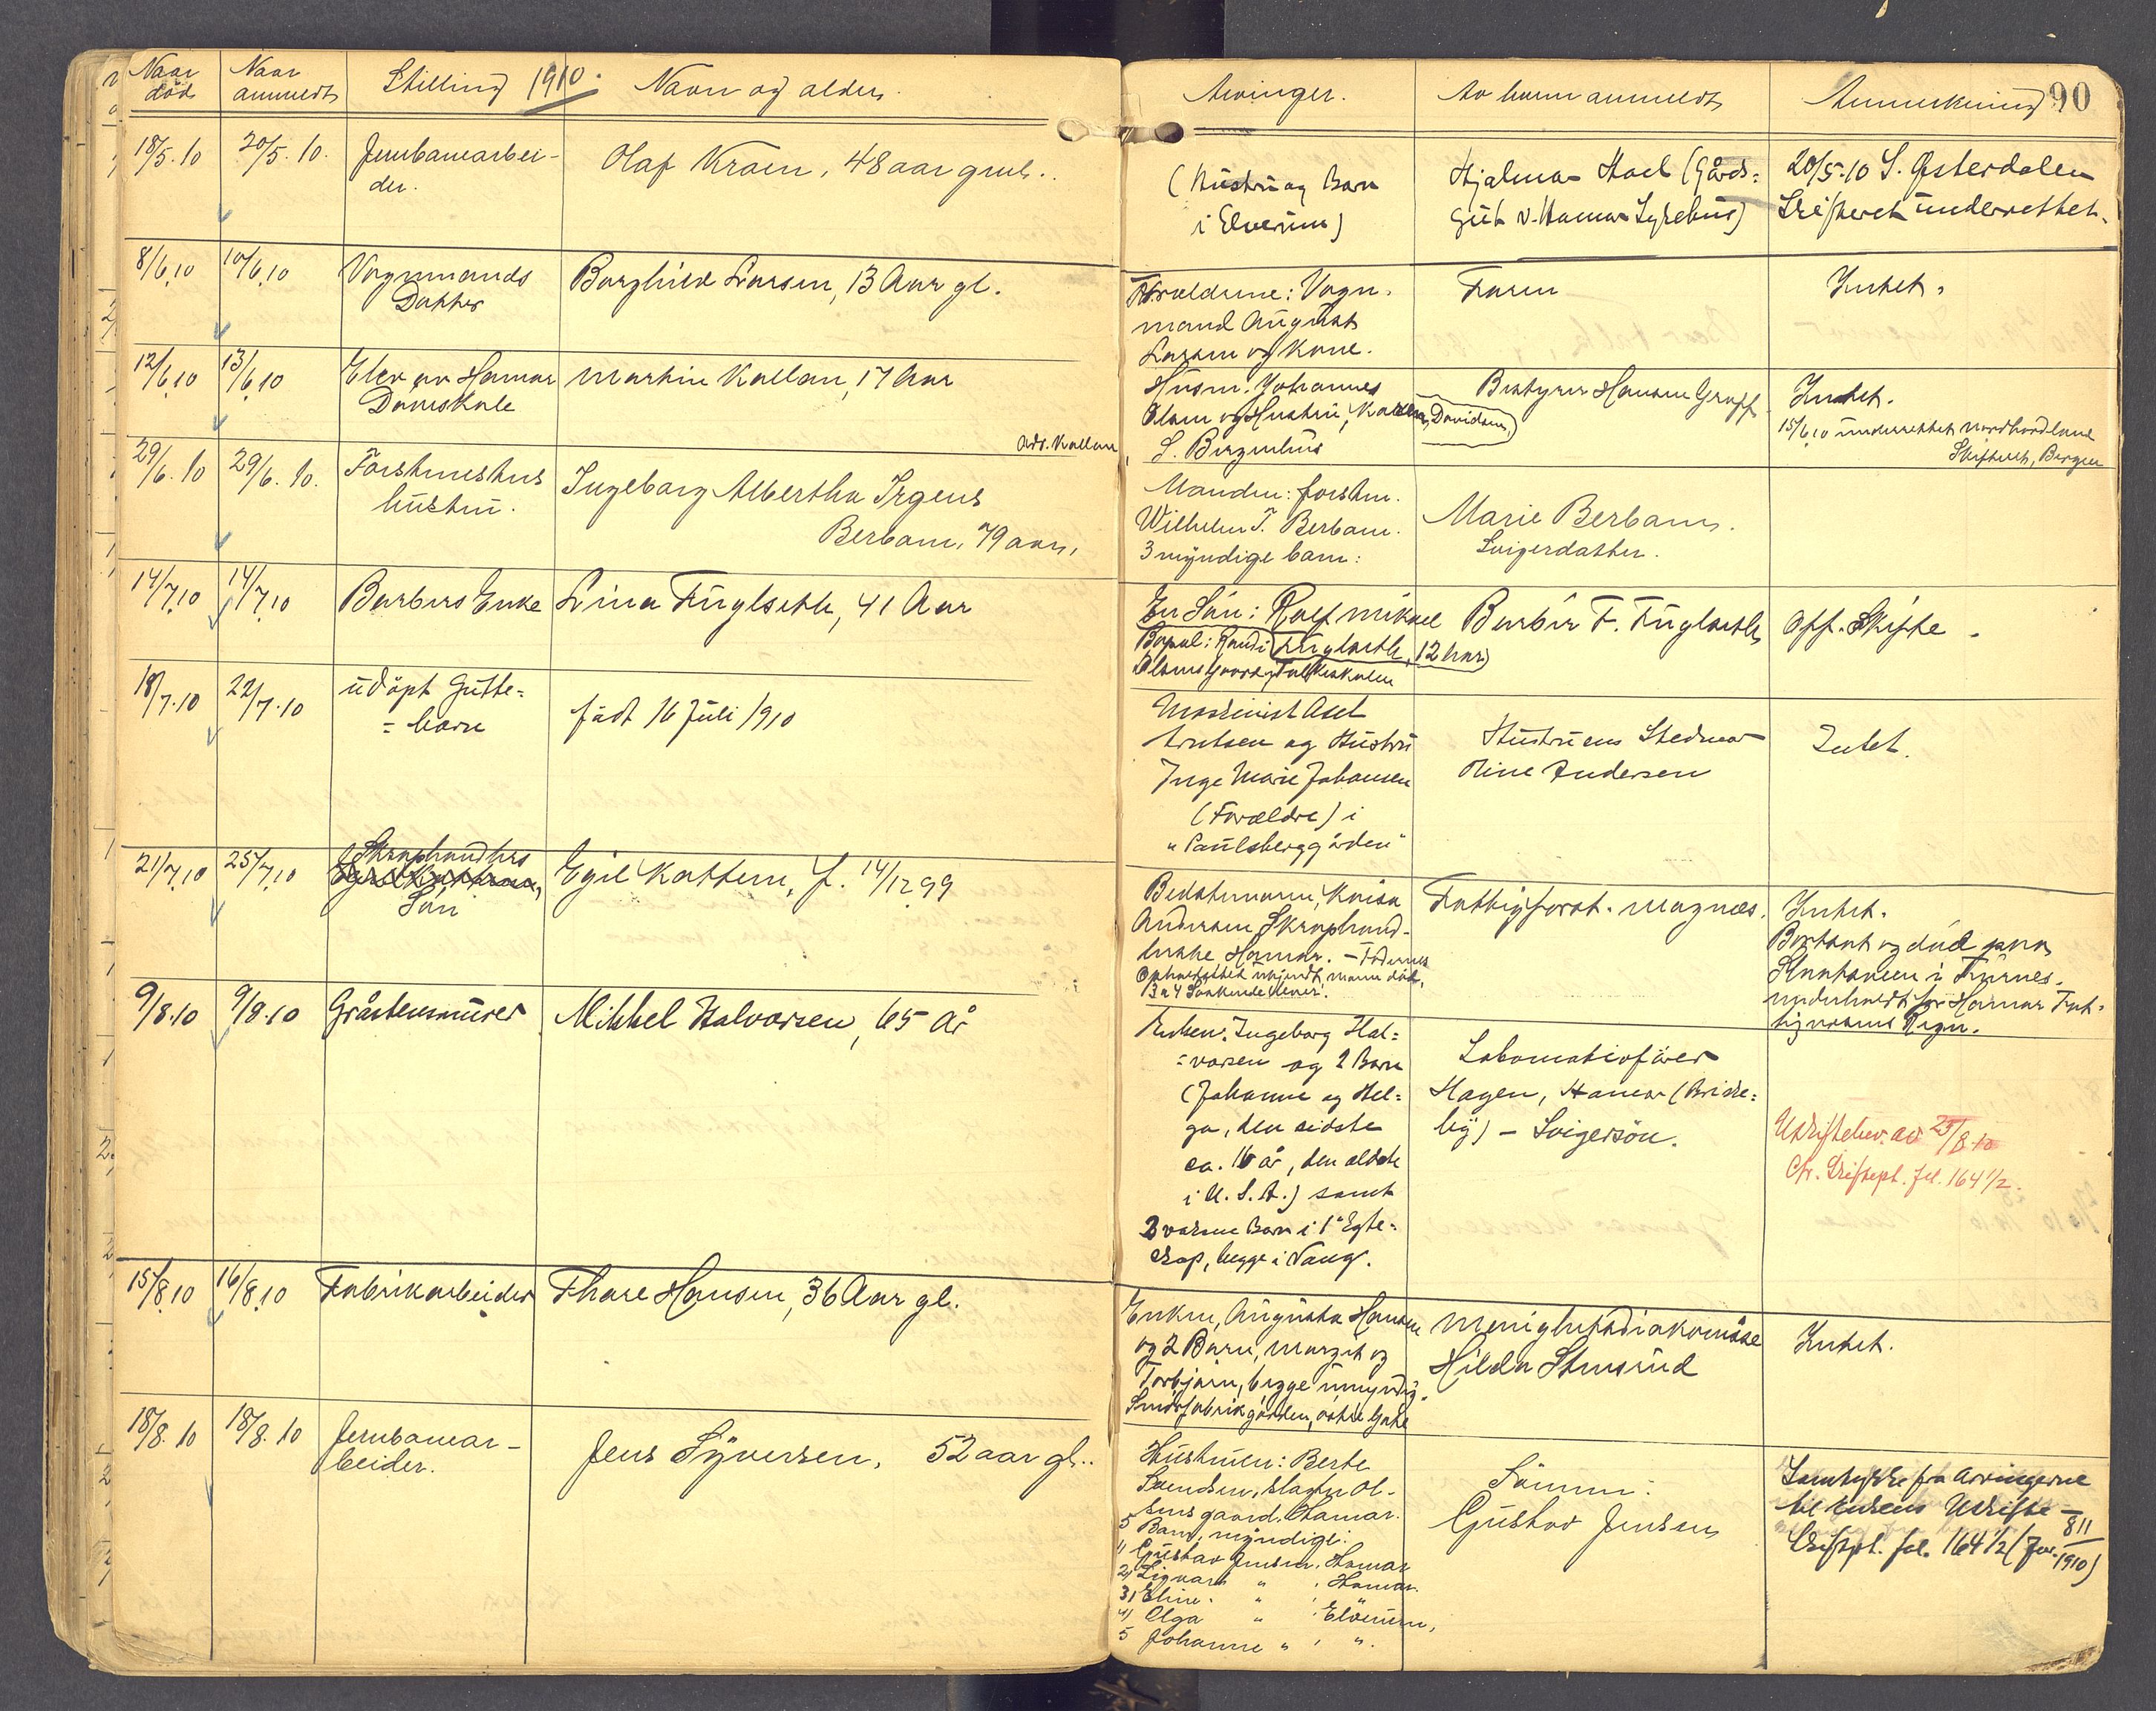 Naar død
Naar anmeldt
Stilling 1910. Navn og alder.
Arvinger.
Av hvem anmeldt
Anmerkning 90
18/5.10
20/5.10.
Jernbanearbei-
der.
Olaf Kroen, 48 aar gml..
(Hustru og Barn
i Elverum)
Hjalmar Hoel (Gårds=
gut v. Hamar Sykehus)
20/5-10 S. Østerdalen
Skifteret underrettet.
8/6.10
10/6.10
Vognmands
Datter
Borghild Larsen, 13 Aar gl.
Forældrene: Vogn.
mand August
Larsen og Kone.
Faren
Intet.
12/6.10
13/6.10
Elev av Hamar
Døveskole
Martin Kallan, 17 Aar
Adr. Kallan
Husm. Johannes
Olsen og Hustru, Karen Davidsen,
S. Bergenhus
Bestyrer Hansen Graff.
Intet.
15/6 10 underrettet Nordhordland
Skifteret, Bergen
29/6.10
29/6.10.
Forstmesters
hustru.
Ingeborg Albertha Irgens
Berbom, 79 aar,
Manden: forstm.
Wilhelm T. Berbom.
3 myndige barn:
Marie Berbom.
Svigerdatter.
14/7.10
14/7.10
Barbers Enke
Lina Fuglseth, 41 Aar
En Søn: Rolf Mikael
Fuglseth, 12 Aar)
Bopæl:
Olsens Gaard, Folkeskolen
Barber F. Fuglseth
Off. Skifte.
18/7.10
22/7.10
udøpt Gutte=
= barn
født 16 Juli 1910
Maskinist Axel
Knutsen og Hustru
Inge Marie Johansen
(Forældre) i
"Paulsberggården"
Hustruens Stedmor
Oline Andersen
Intet.
21/7.10
25/7.10
Skraphandlers
Søn
Egil Kattem, f. 14/12 99
Bedstemoren, Kaisa
Andersen Skraphand-
lerske Hamar. - Faderens
Opholdssted ukjendt, moren død,
3 a 4 Søskende lever.
Fattigforst. Magnæs.
Intet.
Bortsat og død paa
i Furnes.
underholdt for Hamar Fat-
tigvæsens Regn.
9/8.10
9/8.10
Gråstensmurer
Mikkel Halvorsen, 65 år
Enken: Ingeborg Hal=
=vorsen og 2 Barn
(Johanne og Hel=
ga, den sidste
ca. 16 år, den ældste
i U.S.A.) samt
2 voksne Barn i 1ste Egte=
skap, begge i Vang.
Lokomotivfører
Hagen, Hamar (Briske=
by) - Svigersøn.
Uskiftebev. av 25/8 10
Cfr. Skiftept. fol. 164 1/2.
15/8.10
16/8.10
Fabrikarbeider
Thore Hansen, 36 Aar gl.
Enken, Augusta Hansen
og 2 Barn, Margit og
Torbjørn, begge umyndig.
Smørfabrikgården, østre Gate
Menighetsdiakonisse
Hilda Stensrud
Intet.
18/8.10
18/8.10
Jernbanear-
beider.
Jens Syversen, 52 aar gl..
Hustruen: Berte
Svendsen, slagter Ol-
sens gaard, Hamar.
5 Barn, myndige:
1) Gustav Jensen, Hamar
2) Sigvart " , Hamar.
3) Eline " , "
4) Olga " , Elverum,
5 Johanne " , ".
Sønnen:
Gustav Jensen
Samtykke fra arvingerne
til enkens Uskifte -
Skiftpt. fol. 164 1/2 (Jnr. 811/1910)